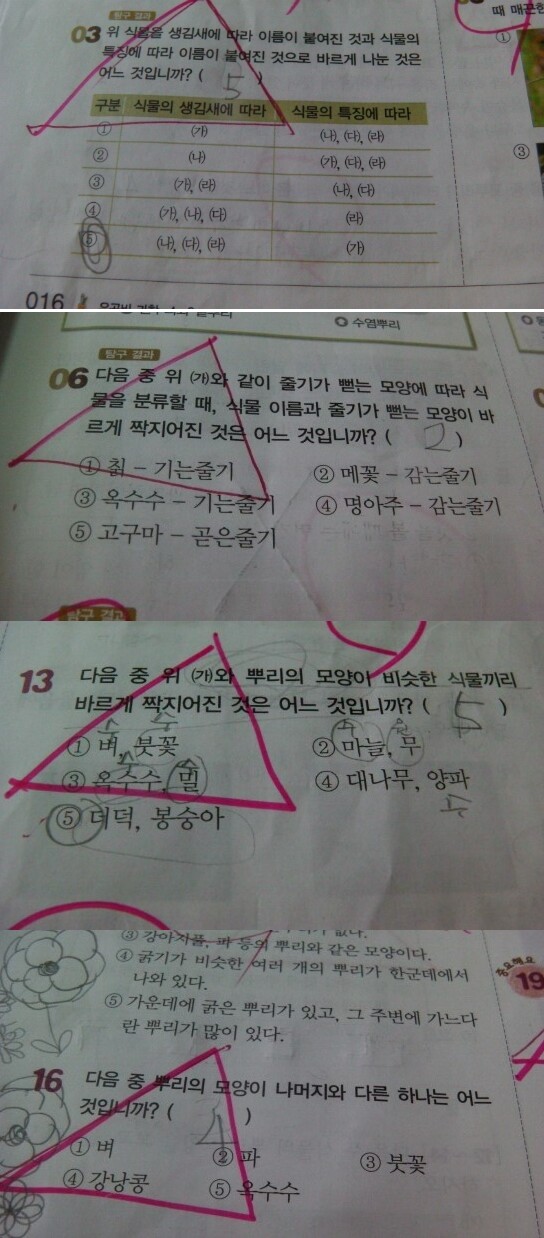 탐구 결과
03 위 식물을 생김새에 따라 이름이 붙여진 것과 식물의
특징에 따라 이름이 붙여진 것으로 바르게 나눈 것은
어느 것입니까? ( 5 )
구분 식물의 생김새에 따라 식물의 특징에 따라
① (가) (나), (다), (라)
② (나) (가), (다), (라)
③ (가), (라) (나), (다)
④ (가), (나), (다) (라)
⑤ (나), (다), (라) (가)
때
①
③
016
수염뿌리
탐구 결과
06 다음 중 위 (가)와 같이 줄기가 뻗는 모양에 따라 식
물을 분류할 때, 식물 이름과 줄기가 뻗는 모양이 바
르게 짝지어진 것은 어느 것입니까? ( 2 )
① 칡 - 기는줄기 ② 메꽃 - 감는줄기
③ 옥수수 - 기는줄기 ④ 명아주 - 감는줄기
⑤ 고구마 - 곧은줄기
탐구 결과
13 다음 중 위 (가)와 뿌리의 모양이 비슷한 식물끼리
바르게 짝지어진 것은 어느 것입니까? ( 5 )
① 벼, 붓꽃 ② 마늘, 무
③ 옥수수, 밀 ④ 대나무, 양파
⑤ 더덕, 봉숭아
③ 강아지풀, 파 등의 뿌리와 같은 모양이다.
④ 굵기가 비슷한 여러 개의 뿌리가 한군데에서
나와 있다.
⑤ 가운데에 굵은 뿌리가 있고, 그 주변에 가느다
란 뿌리가 많이 있다.
19
16 다음 중 뿌리의 모양이 나머지와 다른 하나는 어느
것입니까? ( 4 )
① 벼 ② 파 ③ 붓꽃
④ 강낭콩 ⑤ 옥수수